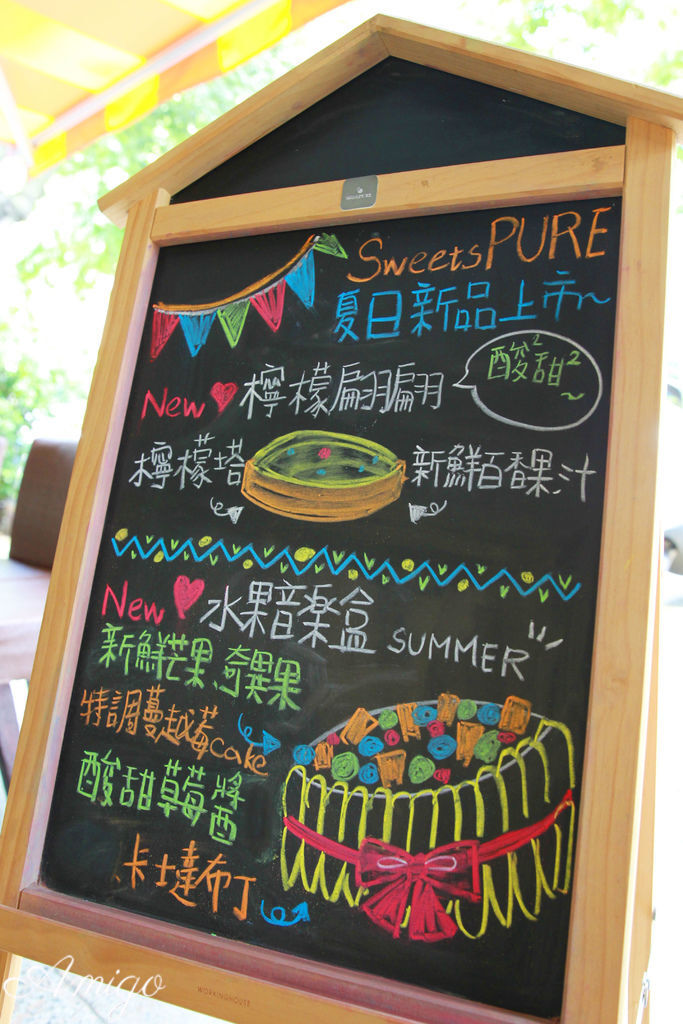 SweetsPURE
夏日新品上市~
New 檸檬翩翩
酸²甜²~
檸檬塔
新鮮百香果汁
New 水果音樂盒 SUMMER
新鮮芒果、奇異果
特調蔓越莓cake
酸甜草莓醬
卡士達布丁
WORKINGHOUSE
Amigo